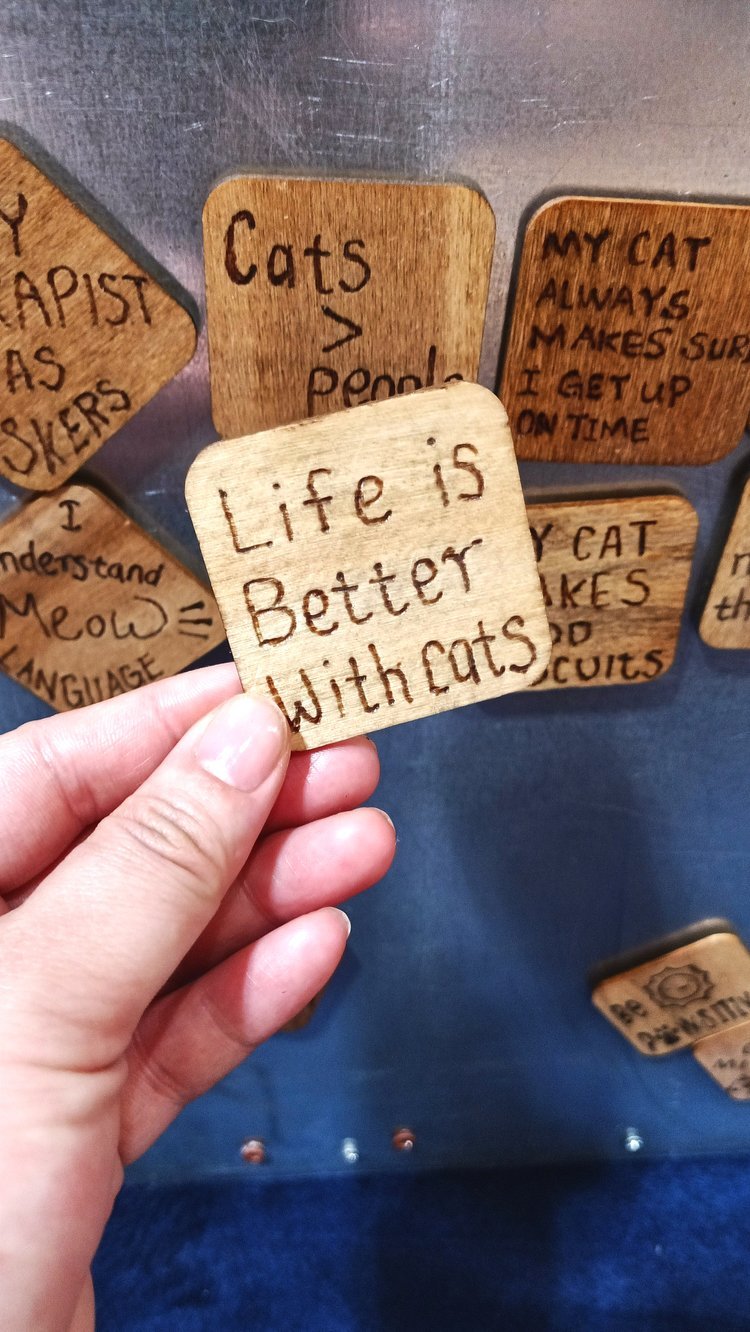 Y
RAPIST
AS
SKERS
Cats
>
people
MY CAT
ALWAYS
MAKES SUR
I GET UP
ON TIME
I
nderstand
Meow
LANGUAGE
Life is
Better
With cats
Y CAT
AKES
OD
SCUITS
th
BE